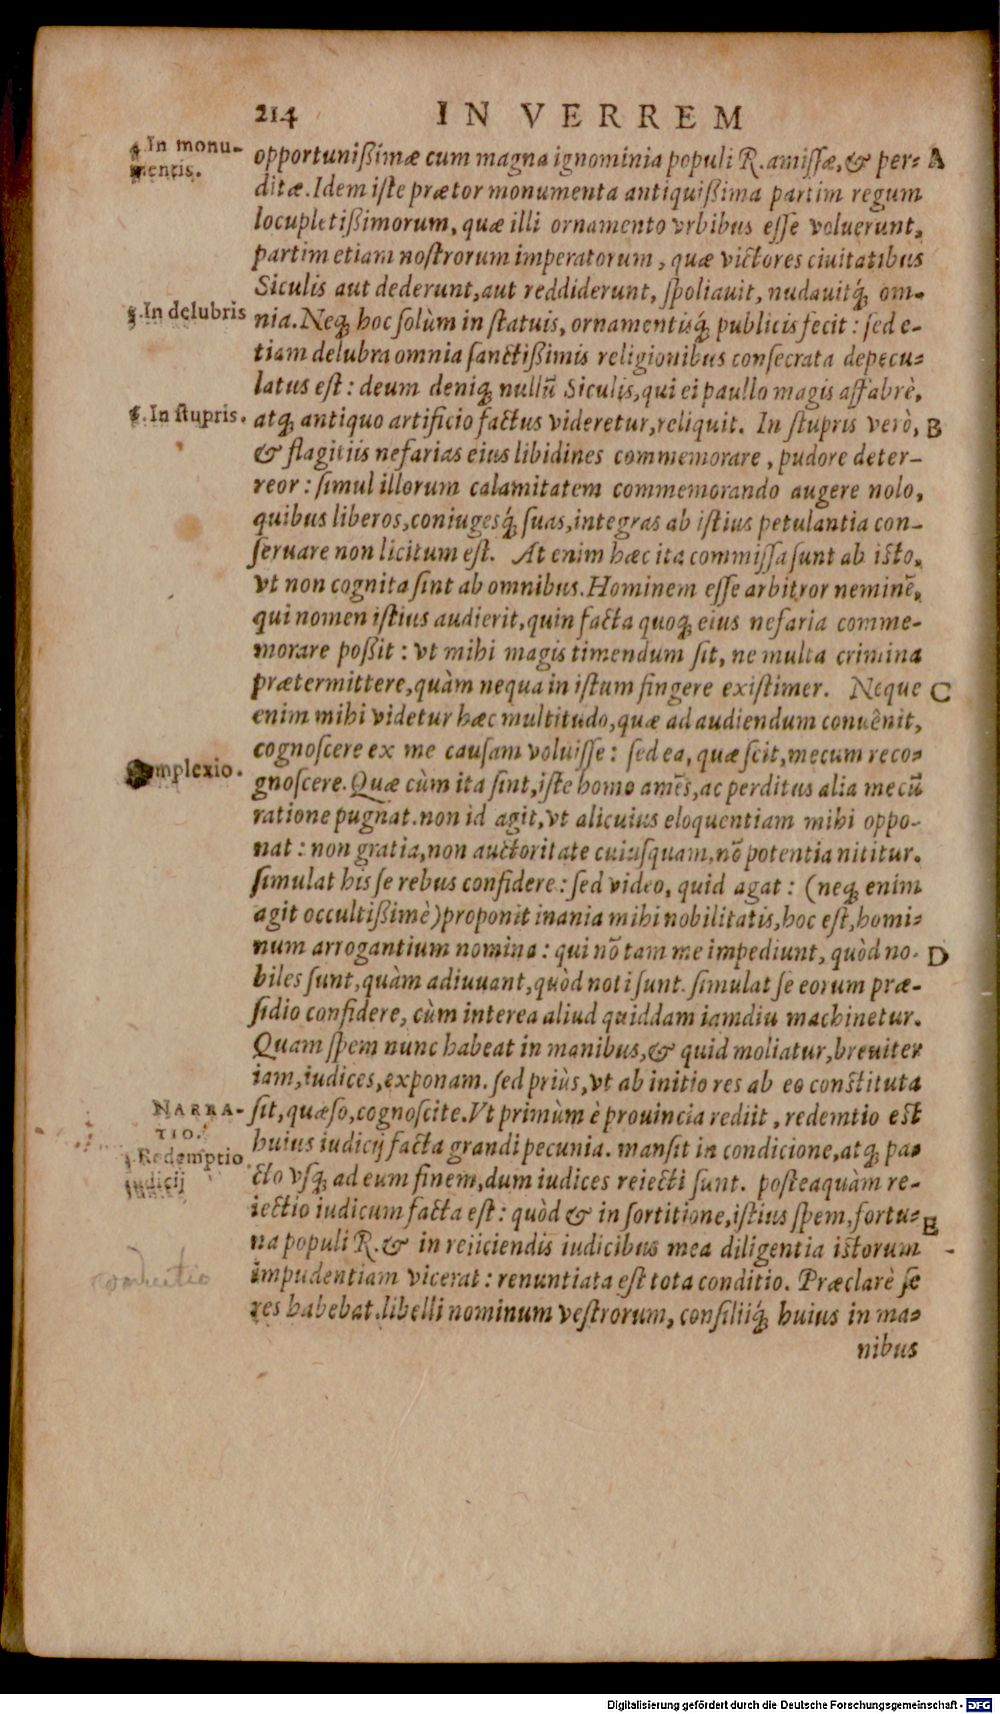 214 IN VERREM
4. In monu-
mentis.
opportunißimæ cum magna ignominia populi R. amissæ, & per= A
ditæ. Idem iste prætor monumenta antiquißima partim regum
locupletißimorum, quæ illi ornamento vrbibus esse voluerunt,
partim etiam nostrorum imperatorum, quæ victores ciuitatibus
Siculis aut dederunt, aut reddiderunt, spoliauit, nudauitq́; om-
5. In delubris
nia. Neq; hoc solùm in statuis, ornamentisq́; publicis fecit: sed e-
tiam delubra omnia sanctißimis religionibus consecrata depecu=
latus est: deum deniq; nullũ Siculis, qui ei paullo magis affabrè,
6. In stupris.
atq; antiquo artificio factus videretur, reliquit. In stupris verò, B
& flagitiis nefarias eius libidines commemorare, pudore deter-
reor: simul illorum calamitatem commemorando augere nolo,
quibus liberos, coniugesq́; suas, integras ab istius petulantia con-
seruare non licitum est. At enim hæc ita commissa sunt ab isto,
vt non cognita sint ab omnibus. Hominem esse arbitror neminẽ,
qui nomen istius audierit, quin facta quoq; eius nefaria comme-
morare poßit: vt mihi magis timendum sit, ne multa crimina
prætermittere, quàm nequa in istum fingere existimer. Neque C
enim mihi videtur hæc multitudo, quæ ad audiendum conuênit,
cognoscere ex me causam voluisse: sed ea, quæ scit, mecum reco=
Complexio.
gnoscere. Quæ cùm ita sint, iste homo amẽs, ac perditus alia mecũ
ratione pugnat. non id agit, vt alicuius eloquentiam mihi oppo-
nat: non gratia, non auctoritate cuiusquam, nõ potentia nititur.
simulat his se rebus confidere: sed video, quid agat: (neq; enim
agit occultißimè) proponit inania mihi nobilitatis, hoc est, homi=
num arrogantium nomina: qui nõ tam me impediunt, quòd no- D
biles sunt, quàm adiuuant, quòd noti sunt. simulat se eorum præ-
sidio confidere, cùm interea aliud quiddam iamdiu machinetur.
Quam spem nunc habeat in manibus, & quid moliatur, breuiter
iam, iudices, exponam. sed priùs, vt ab initio res ab eo constituta
NARRA-
TIO.
sit, quæso, cognoscite. Vt primùm è prouincia rediit, redemtio est
huius iudicij facta grandi pecunia. mansit in condicione, atq; pa=
1. Redemptio
iudicij
cto vsq; ad eum finem, dum iudices reiecti sunt. posteaquàm re-
iectio iudicum facta est: quòd & in sortitione, istius spem, fortu= E
na populi R. & in reiiciendis iudicibus mea diligentia istorum
impudentiam vicerat: renuntiata est tota conditio. Præclarè se
res habebat. libelli nominum vestrorum, consiliiq́; huius in ma=
nibus
Digitalisierung gefördert durch die Deutsche Forschungsgemeinschaft - DFG